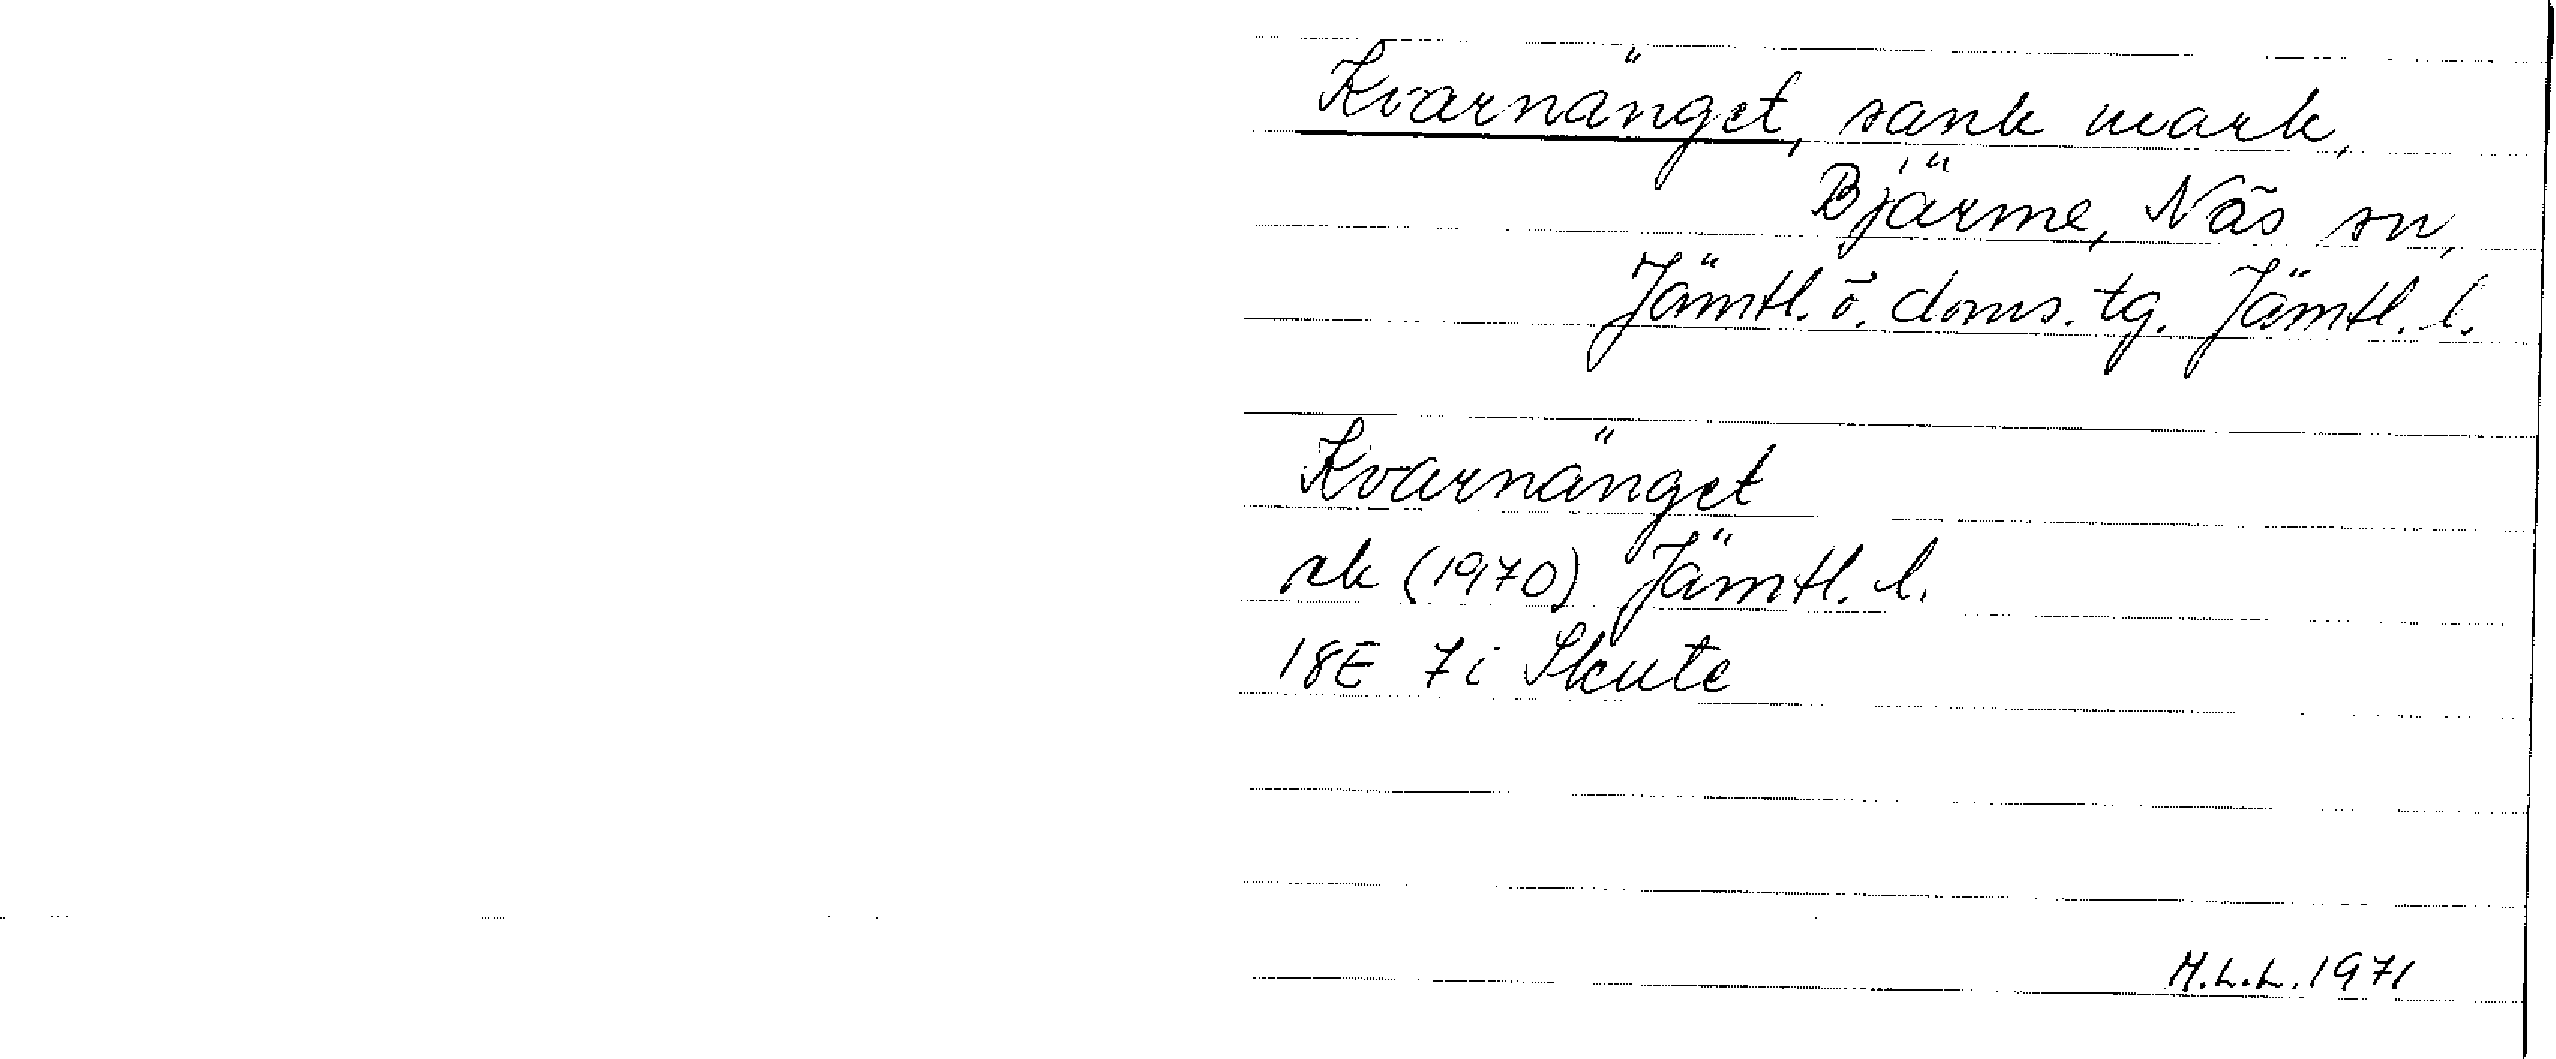 Kvarnänget, sank mark,
Bjärme, Näs sn,
Jämtl. ö. doms. tg. Jämtl. l.
Kvarnänget
rk (1970) Jämtl. l.
18E 7i Skute
M.L.L. 1971